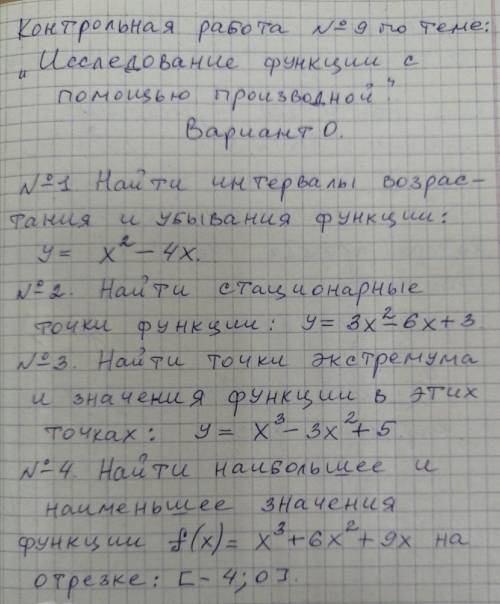 Контрольная работа №9 по теме:
„Исследование функции с
помощью производной".
Вариант 0.
№1 Найти интервалы возрас-
тания и убывания функции:
y = x² - 4x.
№2. Найти стационарные
точки функции: y = 3x² - 6x + 3
№3. Найти точки экстремума
и значения функции в этих
точках: y = x³ - 3x² + 5.
№4. Найти наибольшее и
наименьшее значения
функции f(x) = x³ + 6x² + 9x на
отрезке: [-4; 0].